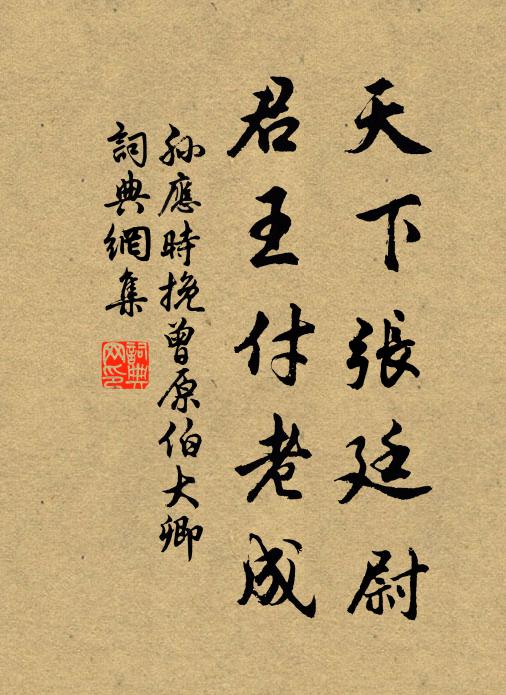 天下張廷尉
君王付老成
孫應時挽曾原伯大卿
詞典網集
詞典网印